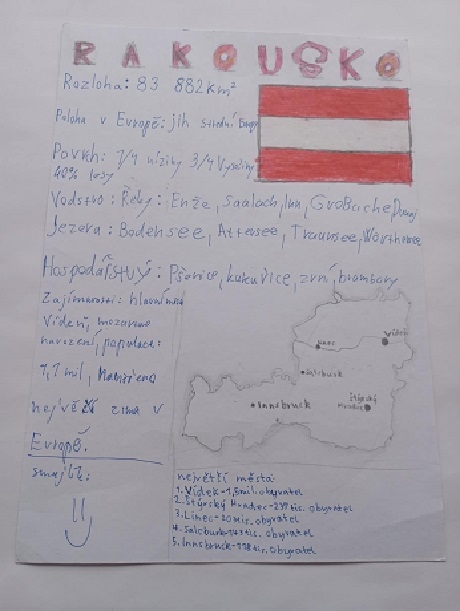 RAKOUSKO
Rozloha: 83 882km²
Poloha v Evropě: jih střední
Povrh: 1/4 nížiny 3/4 Vysočiny
40% lesy
Vodstvo: Řeky: Enže, Saalach, Inn, Große
Jezera: Bodensee, Attersee, Traunsee, Wörthersee
Hospodářstvý: Pšenice, kukuřice, zrní, brambory
Zajímavosti: hlavní
Vídeň, mozartovo
narození, populace:
mil,
největší zima v
Evropě.
smajlík:
Linec
Vídeň
Salcburk
Štýrský
Hradec
Innsbruck
největší města:
1. Vídeň - obyvatel
2. Štýrský Hradec - tis. obyvatel
3. Linec - obyvatel
4. Salcburk - tis. obyvatel
5. Innsbruck - tis. obyvatel